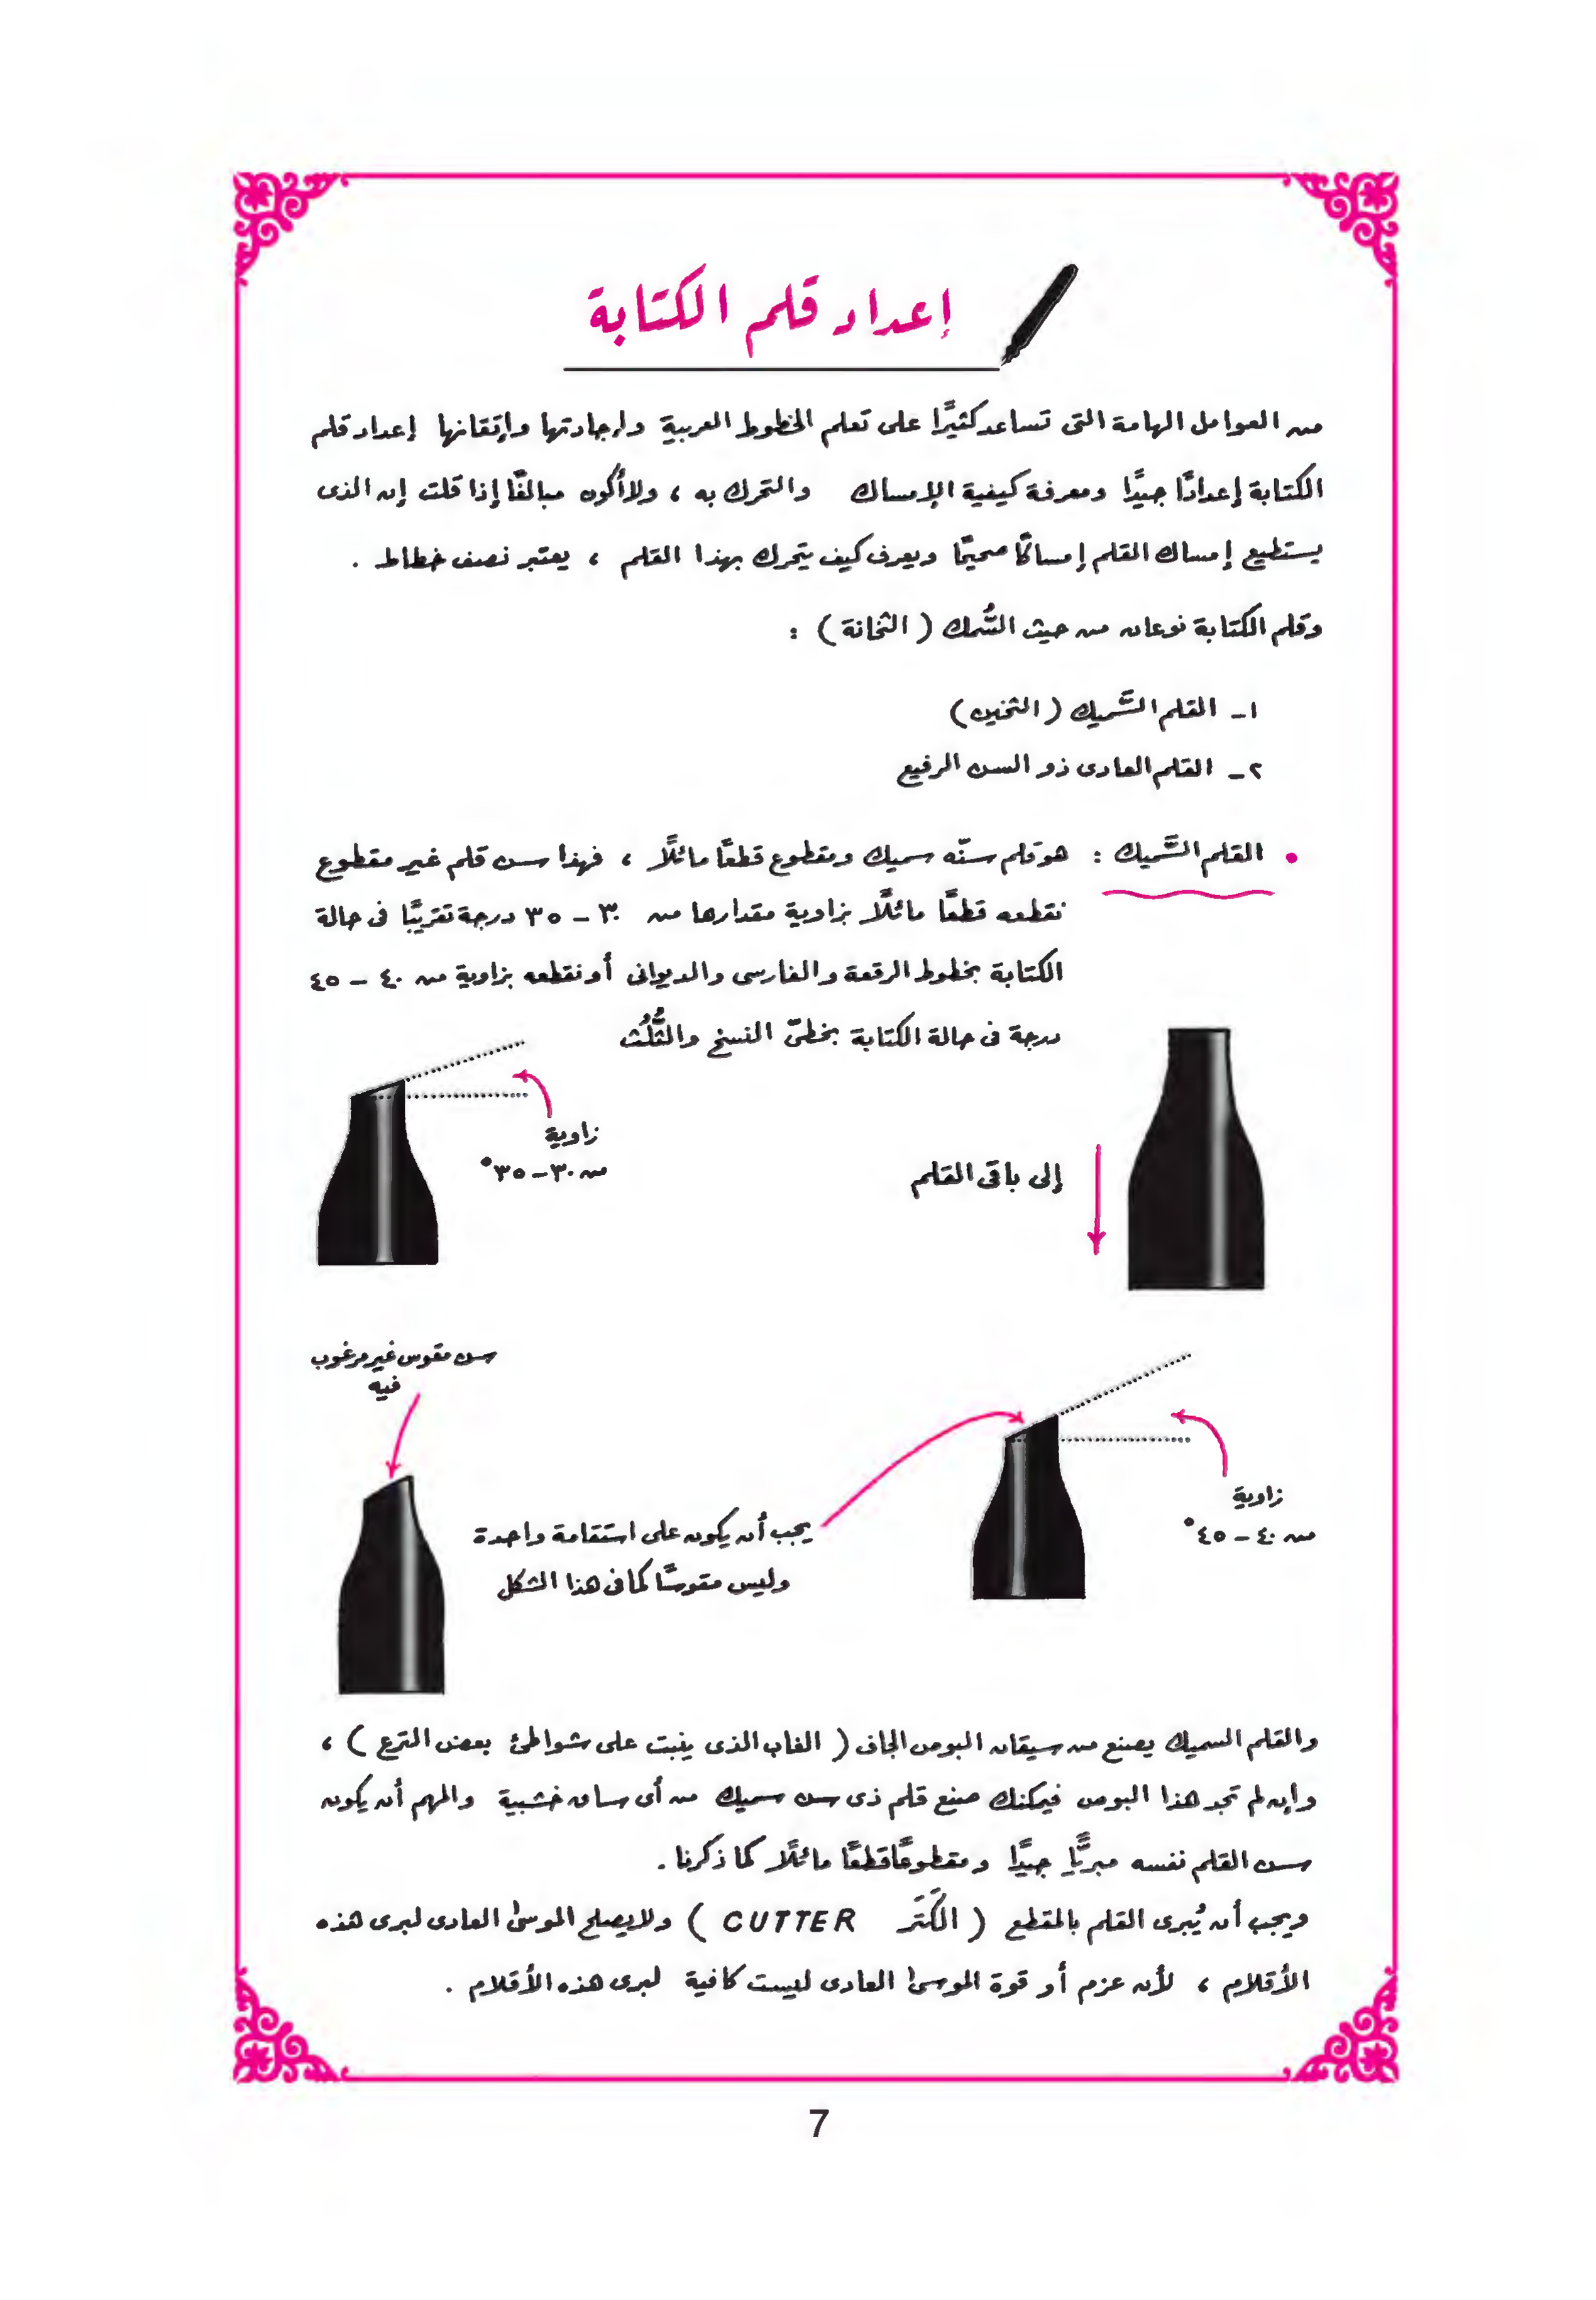 إعداد قلم الكتابة
من العوامل الهامة التى تساعد كثيرًا على تعلم الخطوط العربية وإجادتها وإتقانها إعداد قلم
الكتابة إعدادًا جيدًا ومعرفة كيفية الإمساك والتحرك به ، ولا أكون مبالغًا إذا قلت إن الذى
يستطيع إمساك القلم إمساكًا صحيحًا ويعرف كيف يتحرك بهذا القلم ، يعتبر نصف خطاط .
وقلم الكتابة نوعان من حيث السُّمك ( الثخانة ) :
١ـ القلم السَّميك ( الثخين )
٢ـ القلم العادى ذو السن الرفيع
• القلم السَّميك : هو قلم سنّه سميك ومقطوع قطعًا مائلًا ، فهذا سن قلم غير مقطوع
نقطعه قطعًا مائلًا بزاوية مقدارها من ٣٠ – ٣٥ درجة تقريبًا فى حالة
الكتابة بخطوط الرقعة والفارسى والديوانى أو نقطعه بزاوية من ٤٠ – ٤٥
درجة فى حالة الكتابة بخطىّ النسخ والثُّلُث
زاوية
من ٣٠ – ٣٥°
إلى باقى القلم
سن مقوس غير مرغوب
فيه
زاوية
من ٤٠ – ٤٥°
يجب أن يكون على استقامة واحدة
وليس مقوسًا كما فى هذا الشكل
والقلم السميك يصنع من سيقان البوص الجاف ( الغاب الذى ينبت على شواطئ بعض الترع ) ،
وإن لم تجد هذا البوص فيمكنك صنع قلم ذى سن سميك من أى ساق خشبية والمهم أن يكون
سن القلم نفسه مبريًّا جيدًا ومقطوعًا قطعًا مائلًا كما ذكرنا .
ويجب أن يُبرى القلم بالمقطع ( الكَتَر CUTTER ) ولا يصلح الموسى العادى لبرى هذه
الأقلام ، لأن عزم أو قوة الموسى العادى ليست كافية لبرى هذه الأقلام .
7